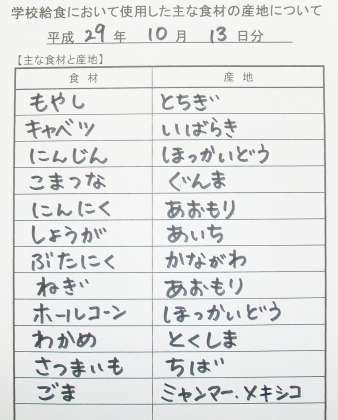 学校給食において使用した主な食材の産地について
平成 29 年 10 月 13 日分
【主な食材と産地】
食材 産地
もやし とちぎ
キャベツ いばらき
にんじん ほっかいどう
こまつな ぐんま
にんにく あおもり
しょうが あいち
ぶたにく かながわ
ねぎ あおもり
ホールコーン ほっかいどう
わかめ とくしま
さつまいも ちば
ごま ミャンマー.メキシコ